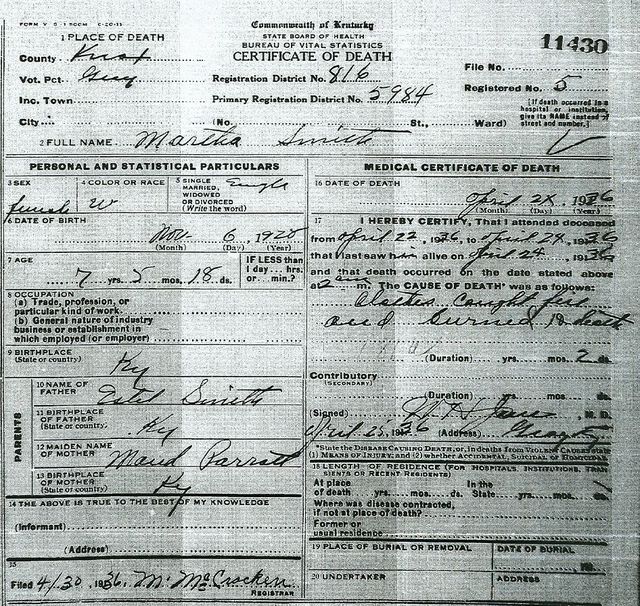 FORM V. S. 1
Commonwealth of Kentucky
STATE BOARD OF HEALTH
BUREAU OF VITAL STATISTICS
CERTIFICATE OF DEATH
11430
1 PLACE OF DEATH
County Knox
Vot. Pct. Gray
Inc. Town
City
Registration District No. 816
Primary Registration District No. 5984
(No. St., Ward)
File No.
Registered No. 5
[If death occurred in a
hospital or institution,
give its NAME instead of
street and number.]
2 FULL NAME Martha Smith
PERSONAL AND STATISTICAL PARTICULARS
3 SEX
female
4 COLOR OR RACE
W
5 SINGLE
MARRIED,
WIDOWED
OR DIVORCED
(Write the word)
Single
6 DATE OF BIRTH
Nov. 6, 1928
(Month) (Day) (Year)
7 AGE
7 yrs. 5 mos. 18 ds.
IF LESS than
1 day... hrs.
or... min.?
8 OCCUPATION
(a) Trade, profession, or
particular kind of work
(b) General nature of industry
business or establishment in
which employed (or employer)
9 BIRTHPLACE
(State or country)
Ky
PARENTS
10 NAME OF
FATHER
Estel Smith
11 BIRTHPLACE
OF FATHER
(State or country)
Ky
12 MAIDEN NAME
OF MOTHER
Maud Parrott
13 BIRTHPLACE
OF MOTHER
(State or country)
Ky
14 THE ABOVE IS TRUE TO THE BEST OF MY KNOWLEDGE
(Informant)
(Address)
15
Filed 4/30 1936, M. McCracken
REGISTRAR
MEDICAL CERTIFICATE OF DEATH
16 DATE OF DEATH
April 24, 1936
(Month) (Day) (Year)
17 I HEREBY CERTIFY, That I attended deceased
from April 22, 1936, to April 24, 1936
that I last saw him alive on April 24, 1936
and that death occurred on the date stated above
at 2 am m. The CAUSE OF DEATH* was as follows:
Clothes caught fire
and burned to death
(Duration) yrs. mos. 2 ds.
Contributory
(SECONDARY)
(Duration) yrs. mos. ds.
(Signed) M. D.
April 25, 1936 (Address) Gray Ky
*State the DISEASE CAUSING DEATH, or, in deaths from VIOLENT CAUSES state
(1) MEANS OF INJURY; and (2) whether ACCIDENTAL, SUICIDAL or HOMICIDAL.
18 LENGTH OF RESIDENCE (FOR HOSPITALS, INSTITUTIONS, TRAN-
SIENTS OR RECENT RESIDENTS)
At place In the
of death yrs. mos. ds. State yrs. mos. ds.
Where was disease contracted,
if not at place of death?
Former or
usual residence
19 PLACE OF BURIAL OR REMOVAL
DATE OF BURIAL
20 UNDERTAKER
ADDRESS